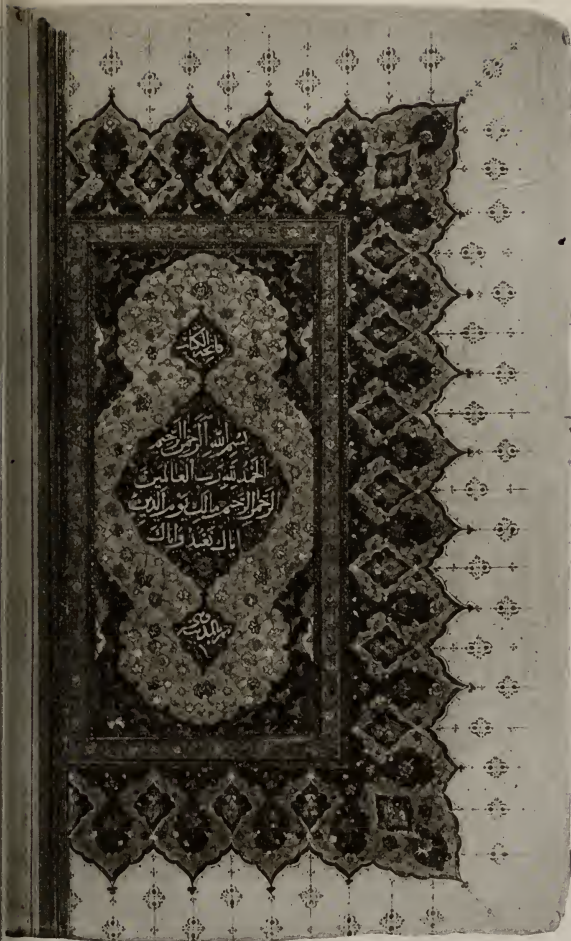 فاتحة الكتاب
بسم الله الرحمن الرحيم
الحمد لله رب العالمين
الرحمن الرحيم مالك يوم الدين
اياك نعبد واياك